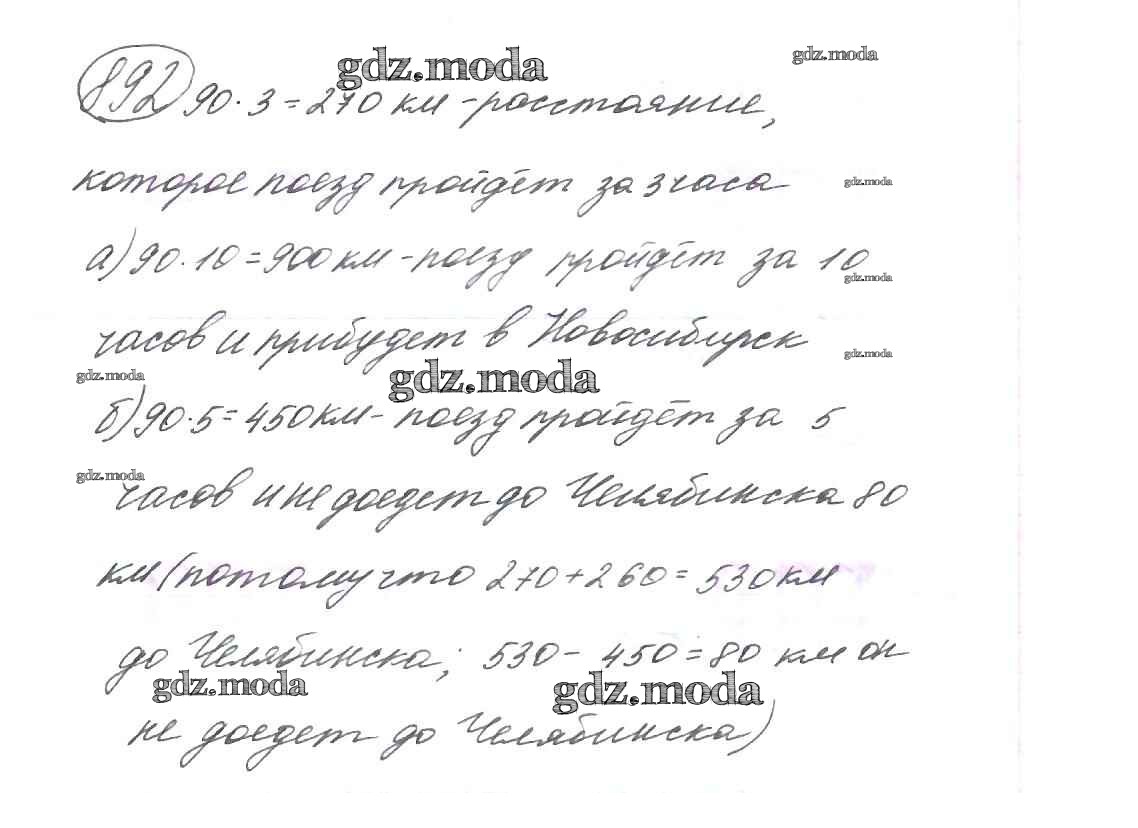 gdz.moda
gdz.moda
892 90·3=270 км -расстояние,
которое поезд пройдёт за 3 часа
gdz.moda
а) 90·10=900 км -поезд пройдёт за 10
gdz.moda
часов и прибудет в Новосибирск
gdz.moda
gdz.moda
gdz.moda
б) 90·5=450 км- поезд пройдёт за 5
gdz.moda
часов и не доедет до Челябинска 80
км (потому что 270+260=530 км
до Челябинска; 530- 450=80 км он
gdz.moda
gdz.moda
не доедет до Челябинска)